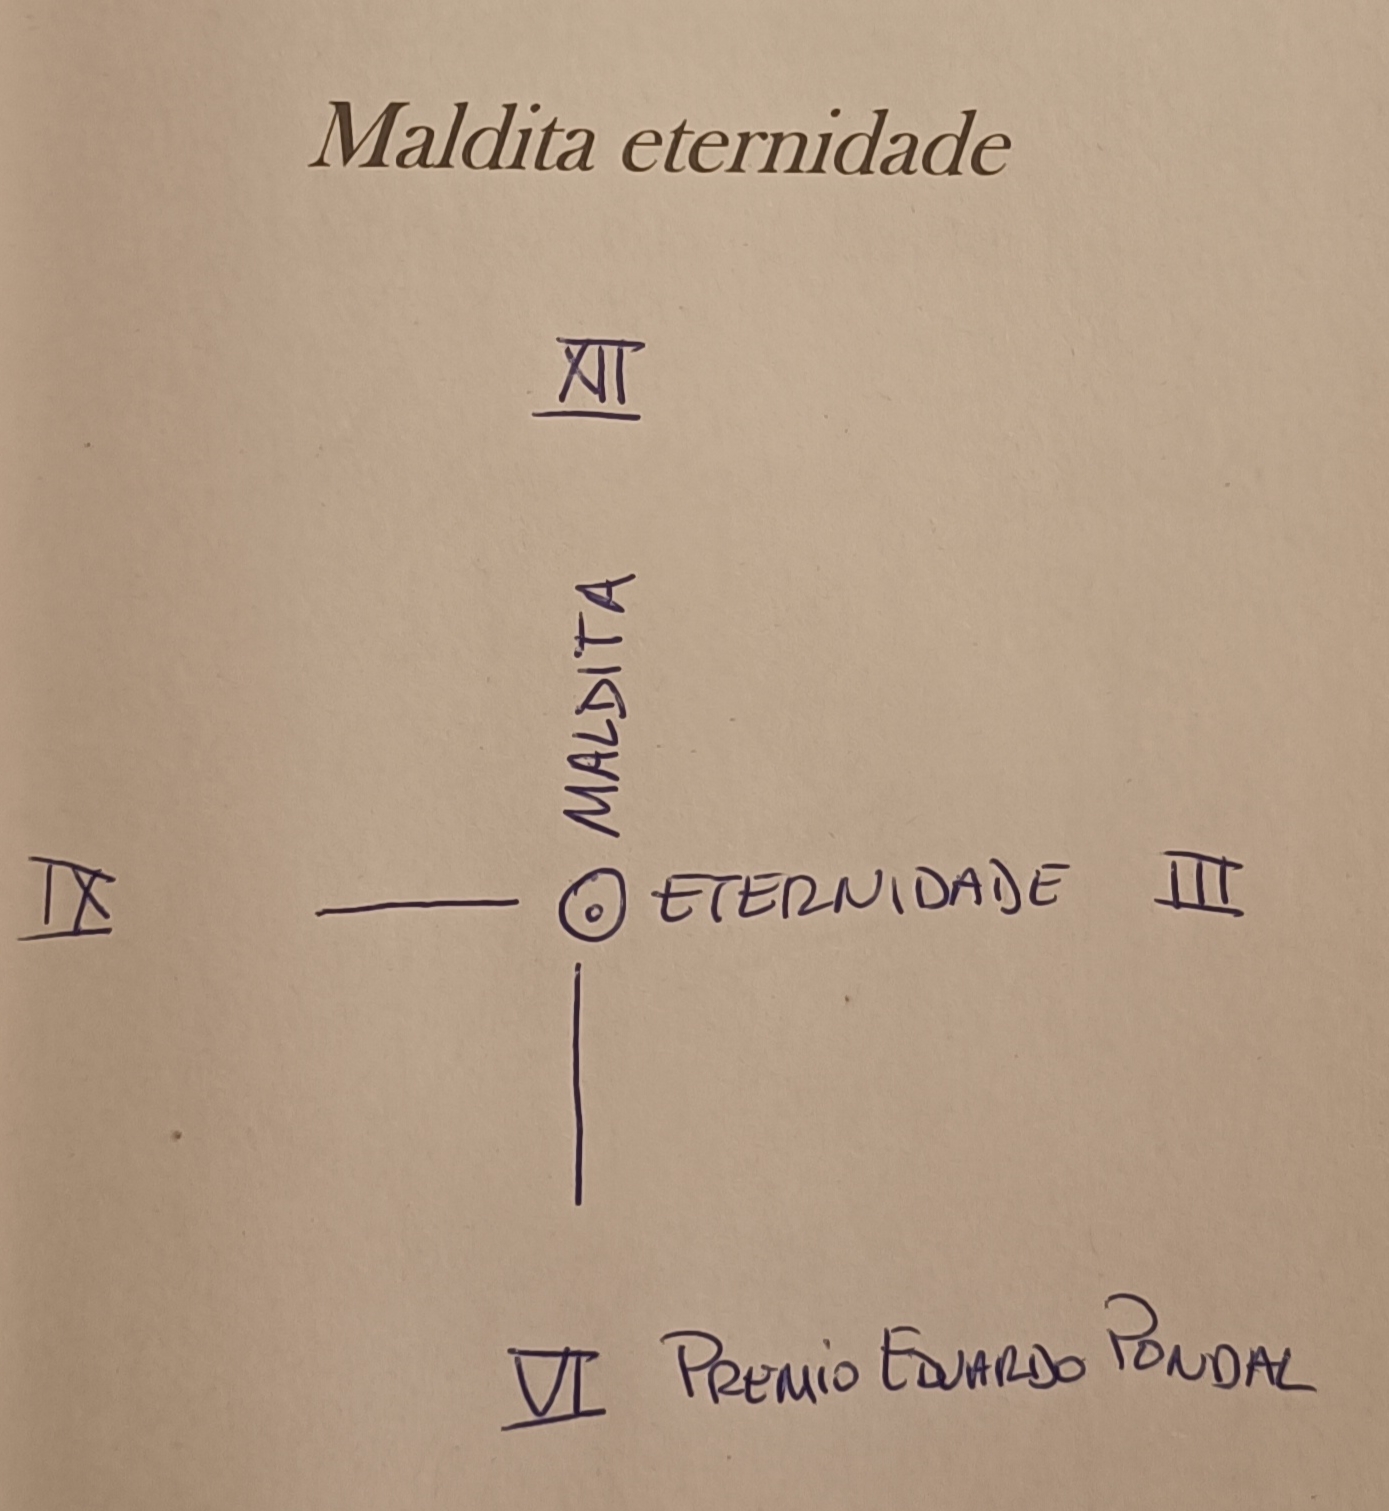 Maldita eternidade
XII
MALDITA
IX
ETERNIDADE III
VI PREMIO EDUARDO PONDAL